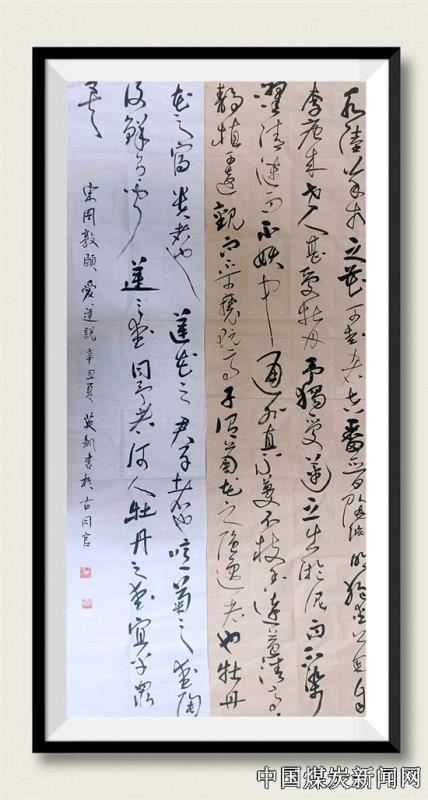 水陸草木之花可愛者甚蕃晉陶淵明獨愛菊自
李唐來世人甚愛牡丹予獨愛蓮之出淤泥而不染
濯清漣而不妖中通外直不蔓不枝香遠益清亭
靜植可遠觀而不可褻玩焉予謂菊花之隱逸者也牡丹
花之富貴者也蓮花之君子者也噫菊之愛陶
後鮮有聞蓮之愛同予者何人牡丹之愛宜乎眾
矣
宋周敦頤愛蓮說辛丑夏英書於古同官
中国煤炭新闻网